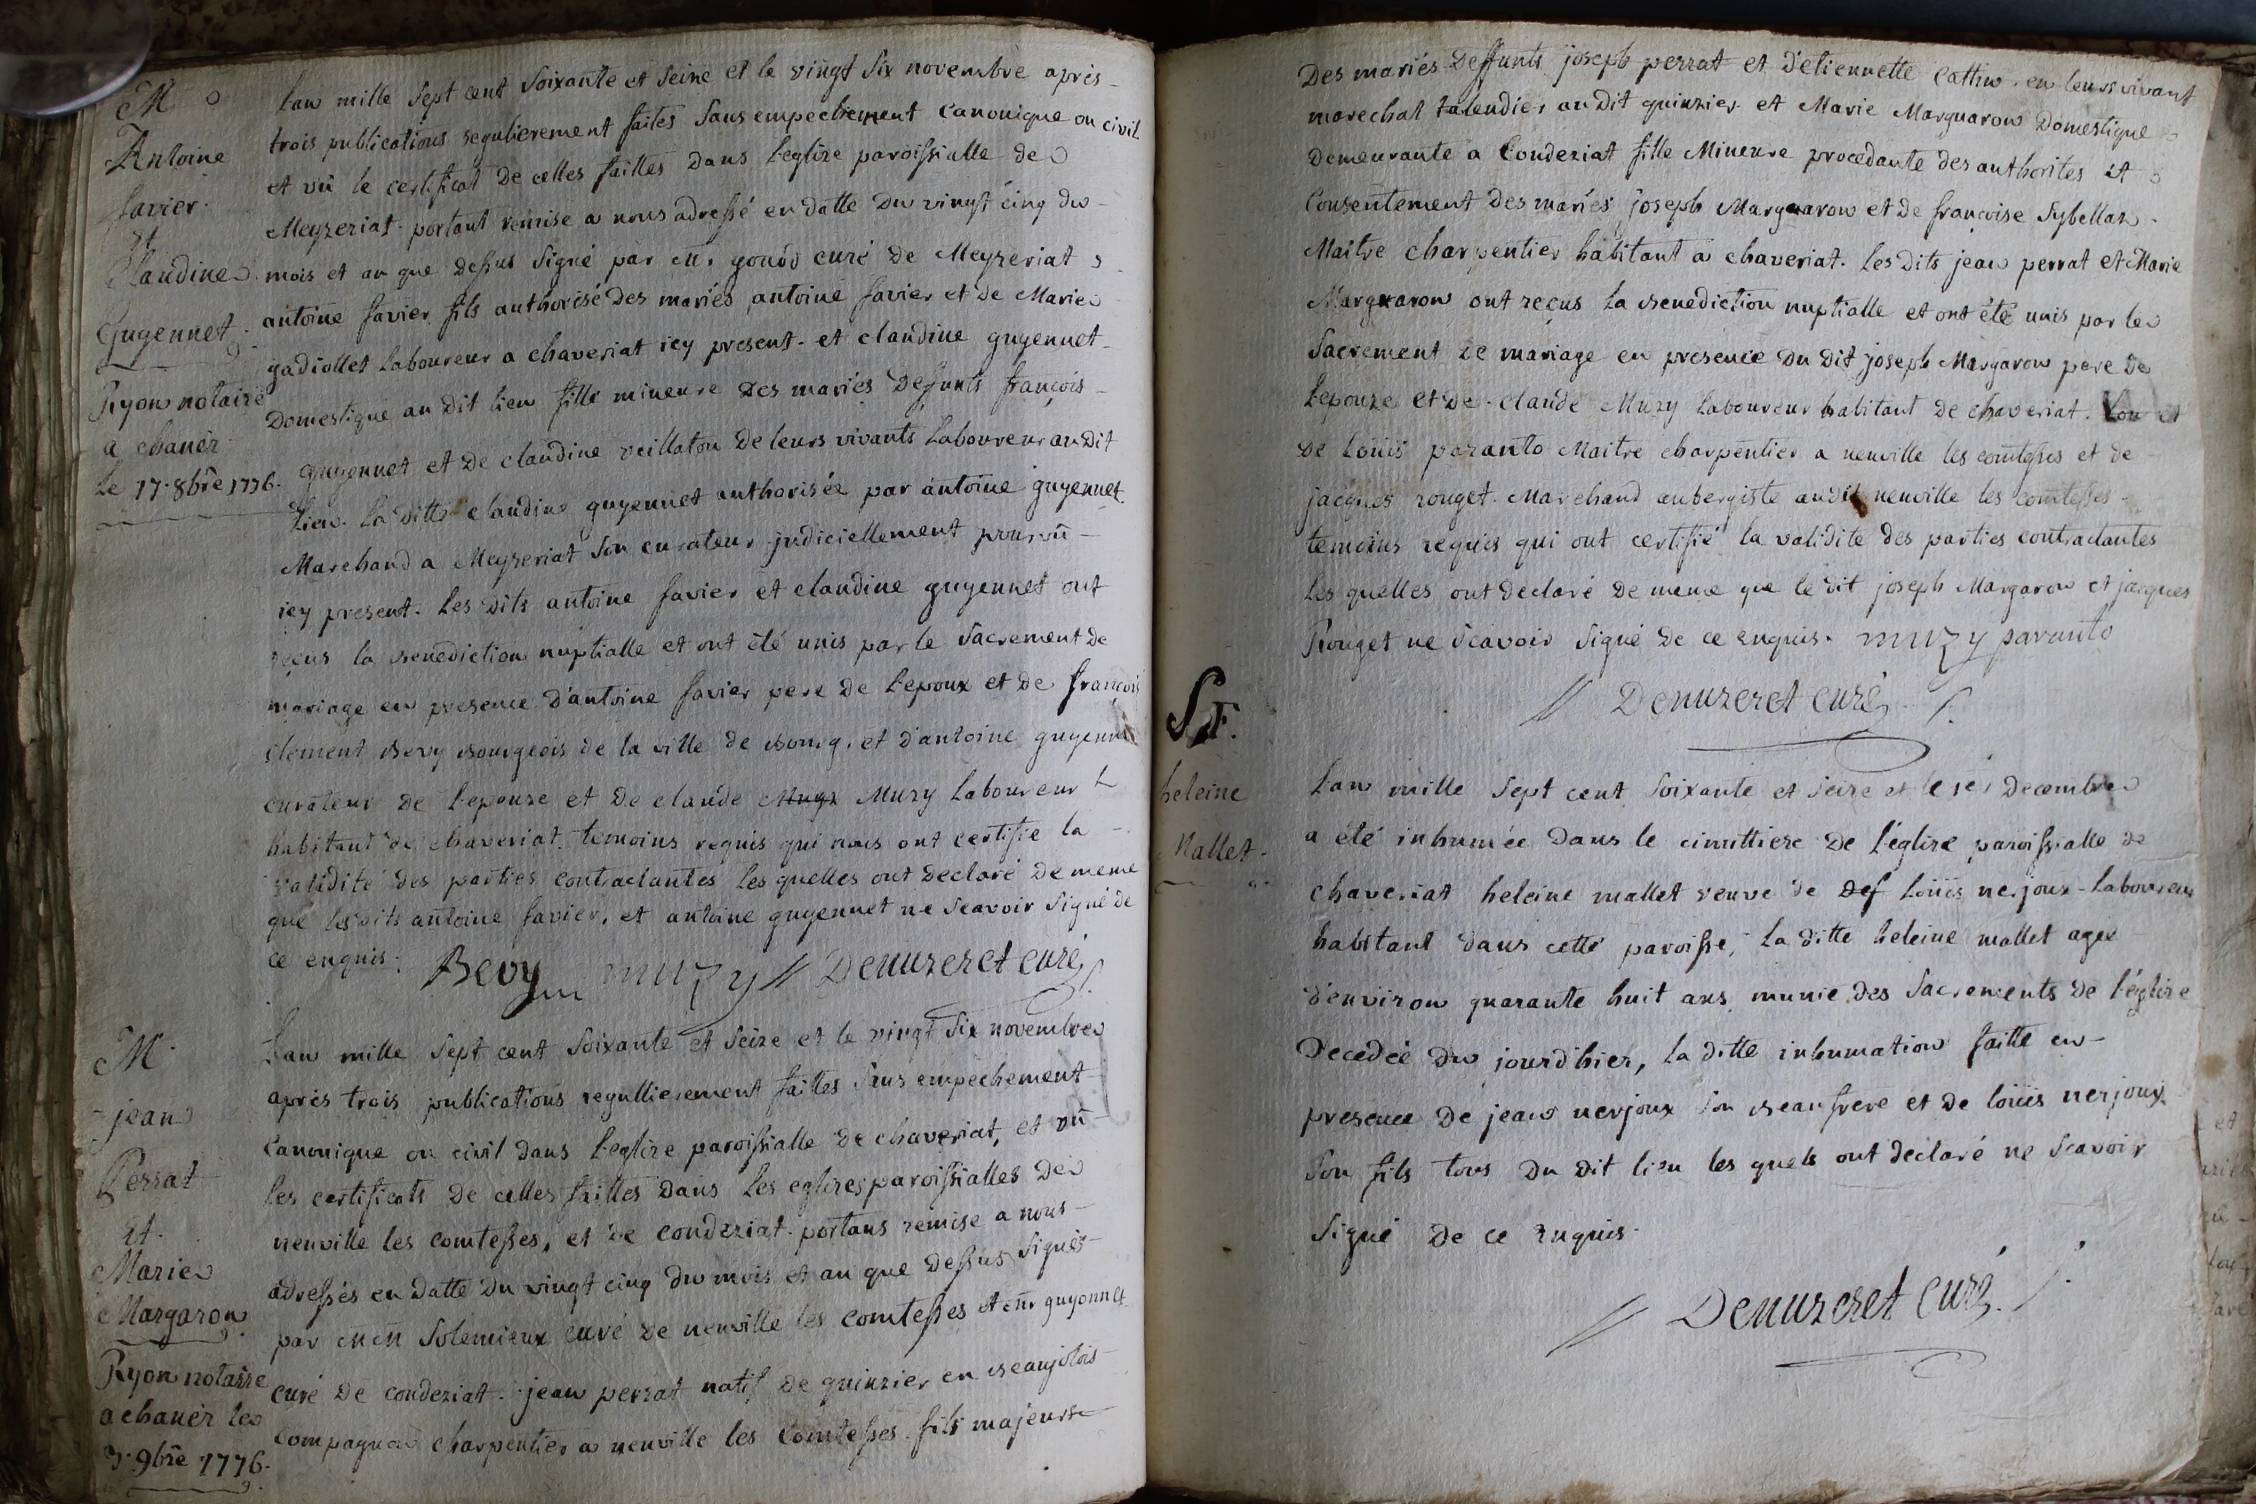 M
Antoine
favier.
et
Claudine
Guyennet.
Ryon notaire
a chaver
le 17. 8bre 1776.
Lan mille Sept cent Soixante et Seize et le vingt Six novembre après
trois publications regulierement faites Sans empechement Canonique ou civil
et vû le certificat de celles faittes dans l'eglize paroissialle de
Meyzeriat portant remise a nous adressé en datte du vingt cinq du
mois et an que dessus Signé par Mr. gonod curé de Meyzeriat
antoine favier fils authorisé des mariés antoine favier et de Marie
gadiollet Laboureur a chaveriat icy present. et claudine guyennet
Domestique au dit lieu fille mineure des mariés deffunts françois
guyennet et de claudine veillaton de leurs vivants Laboureur au dit
Lieu. La ditte claudine guyennet authorisée par antoine guyennet
Marchand a Meyzeriat Son curateur judiciellement pourvû
icy present. Les dits antoine favier et claudine guyennet ont
reçus la benediction nuptialle et ont été unis par le Sacrement de
mariage en presence d'antoine favier pere de l'epoux et de françois
clement Bevy Bourgeois de la ville de Bourg, et d'antoine guyennet
curateur de l'epouze et de claude Muzy Laboureur
habitant de chaveriat temoins requis qui nous ont certifie la
validité des parties contractantes les quelles ont declaré de meme
que les dits antoine favier, et antoine guyennet ne Scavoir Signé de
ce enquis. Bevy muzy Denuzeret curé
M.
jean
Perrat
et.
Marie
Margaron.
Ryon notaire
a chaver le
3. 9bre 1776.
Lan mille Sept cent Soixante et Seize et le vingt Six novembre
après trois publications regullierement faittes Sans empechement
Canonique ou civil dans l'eglize paroissialle de chaveriat, et vû
les certificats de celles faittes dans les eglizes paroissialles de
neuville les comtesses, et de condeziat portans remise a nous
adressés en datte du vingt cinq du mois et an que dessus Signés
par Solemieux curé de neuville les comtesses et Mr guyonnet
curé de condeziat. jean perrat natif de quinzier en Beaujolois
compagnon charpentier a neuville les Comtesses fils majeur
Des mariés Deffunts joseph perrat et d'etiennette Cattin, en leurs vivant
marechal talendier au Dit quinzier et Marie Marguaron Domestique
Demeurante a Condeziat fille Mineure procedante des authorites et
Consentement des mariés joseph Marguaron et de françoise Sybellaz
Maitre charpentier habitant a chaveriat. Les Dits jean perrat et Marie
Marguaron ont reçus La Benediction nuptialle et ont été unis par le
Sacrement de mariage en presence du Dit joseph Margaron pere de
L'epouze et de claude Muzy Laboureur habitant de chaveriat. et
de Loüis paranto Maitre charpentier a neuville les comtesses et de
jacques rouget Marchand aubergiste audit neuville les comtesses
temoins requis qui ont certifié la validite des parties contractantes
Les quelles ont declaré de meme que le dit joseph Margaron et jacques
Rouget ne Scavoir Signé de ce enquis. muzy paranto
Denuzeret curé
S F.
heleine
Mallet.
Lan mille Sept cent Soixante et Seize et le decembre
a été inhumée dans le cimittiere de l'églize paroissialle de
chaveriat heleine mallet veuve de def Loüis nerjoux Laboureur
habitant dans cette paroisse, La ditte heleine mallet agee
d'environ quarante huit ans, munie des Sacrements de l'églize
Decedée du jourd'hier, la ditte inhumation faitte en
presence de jean nerjoux Son Beaufrere et de loüis nerjoux
Son fils tous du dit lieu les quels ont declaré ne Scavoir
Signé de ce enquis.
Denuzeret curé.